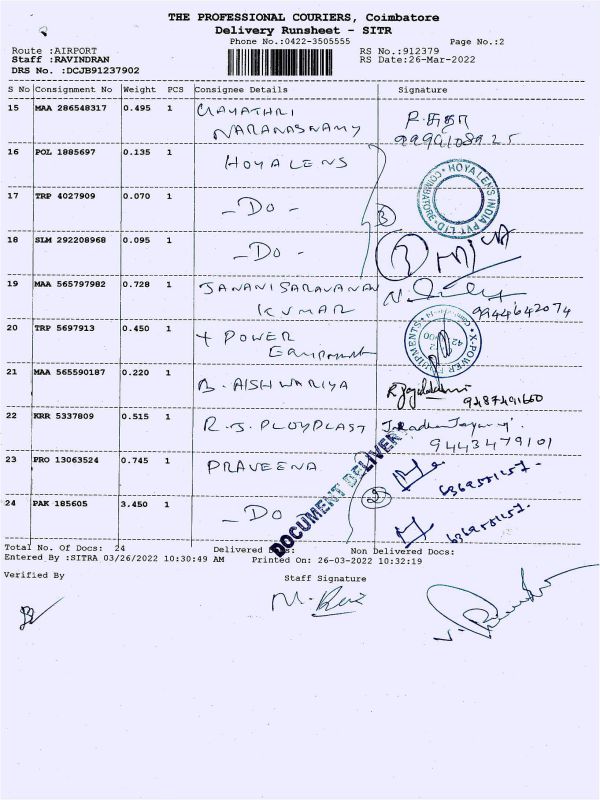 THE PROFESSIONAL COURIERS, Coimbatore
Delivery Runsheet - SITR
Phone No.:0422-3505555 Page No.:2
Route :AIRPORT RS No.:912379
Staff :RAVINDRAN RS Date:26-Mar-2022
DRS No. :DCJB91237902
S No Consignment No Weight PCS Consignee Details Signature
15 MAA 286548317 0.495 1 GAYATHRI
NARANASWAMY
16 POL 1885697 0.135 1 HOYALENS
HOYA LENS INDIA PVT. LTD COIMBATORE
17 TRP 4027909 0.070 1 - DO - 3
18 SLM 292208968 0.095 1 - DO - 3
19 MAA 565797982 0.728 1 JANANI SARAVANAN
KUMAR 9944642074
20 TRP 5697913 0.450 1 X POWER
X-POWER EQUIPMENTS
21 MAA 565590187 0.220 1 B. AISHWARIYA
9487491660
22 KRR 5337809 0.515 1 R.J. PLOYPLAST
9443479101
23 PRO 13063524 0.745 1 PRAVEENA
DOCUMENT DELIVER
2
24 PAK 185605 3.450 1 - DO
Total No. Of Docs: 24 Delivered Docs: Non Delivered Docs:
Entered By :SITRA 03/26/2022 10:30:49 AM Printed On: 26-03-2022 10:32:19
Verified By Staff Signature